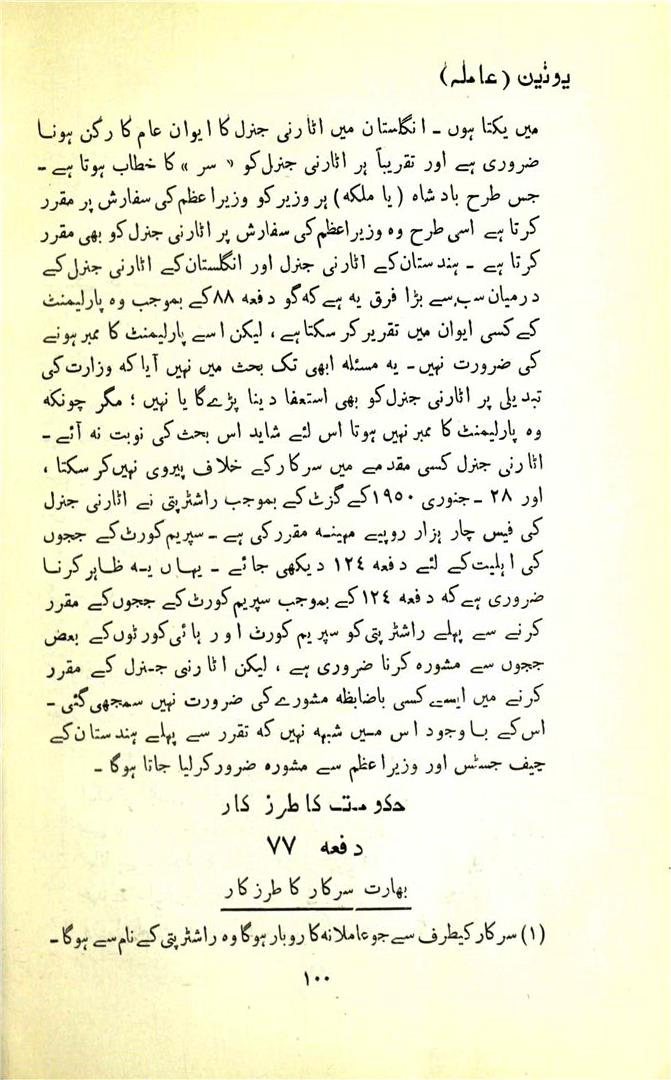 یونین (عاملہ)
میں یکتا ہوں ـ انگلستان میں اٹارنی جنرل کا ایوان عام کا رکن ہونا
ضروری ہے اور تقریباً ہر اٹارنی جنرل کو «سر» کا خطاب ہوتا ہے ـ
جس طرح بادشاہ (یا ملکہ) ہر وزیر کو وزیراعظم کی سفارش پر مقرر
کرتا ہے اسی طرح وہ وزیراعظم کی سفارش پر اٹارنی جنرل کو بھی مقرر
کرتا ہے ـ ہندستان کے اٹارنی جنرل اور انگلستان کے اٹارنی جنرل کے
درمیان سب سے بڑا فرق یہ ہے کہ گو دفعہ ٨٨ کے بموجب وہ پارلیمنٹ
کے کسی ایوان میں تقریر کر سکتا ہے ، لیکن اسے پارلیمنٹ کا ممبر ہونے
کی ضرورت نہیں ـ یہ مسئلہ ابھی تک بحث میں نہیں آیا کہ وزارت کی
تبدیلی پر اٹارنی جنرل کو بھی استعفا دینا پڑے گا یا نہیں ؛ مگر چونکہ
وہ پارلیمنٹ کا ممبر نہیں ہوتا اس لئے شاید اس بحث کی نوبت نہ آئے ـ
اٹارنی جنرل کسی مقدمے میں سرکار کے خلاف پیروی نہیں کر سکتا ،
اور ٢٨ ـ جنوری ١٩٥٠ کے گزٹ کے بموجب راشٹرپتی نے اٹارنی جنرل
کی فیس چار ہزار روپیے مہینہ مقرر کی ہے ـ سپریم کورٹ کے ججوں
کی اہلیت کے لئے دفعہ ١٢٤ دیکھی جائے ـ یہاں یہ ظاہر کرنا
ضروری ہے کہ دفعہ ١٢٤ کے بموجب سپریم کورٹ کے ججوں کے مقرر
کرنے سے پہلے راشٹرپتی کو سپریم کورٹ اور ہائی کورٹوں کے بعض
ججوں سے مشورہ کرنا ضروری ہے ، لیکن اٹارنی جنرل کے مقرر
کرنے میں ایسے کسی باضابطہ مشورے کی ضرورت نہیں سمجھی گئی ـ
اس کے باوجود اس میں شبہہ نہیں کہ تقرر سے پہلے ہندستان کے
چیف جسٹس اور وزیراعظم سے مشورہ ضرور کر لیا جاتا ہوگا ـ
حکومت کا طرز کار
دفعہ ٧٧
بھارت سرکار کا طرز کار
(١) سرکار کیطرف سے جو عاملانہ کاروبار ہوگا وہ راشٹرپتی کے نام سے ہوگا ـ
١٠٠